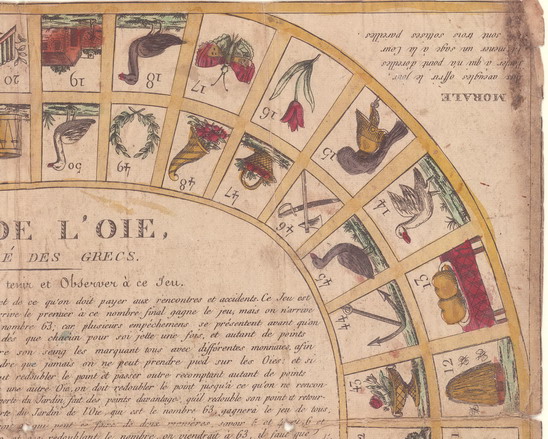 MORALE
aveugles offrir le jour
a qui n'a point d'oreilles
mener un sage a la Cour
sont trois sottises pareilles
20
19
18
17
16
15
14
13
12
50
49
48
47
46
45
44
43
DE L'OIE,
É DES GRECS.
tenir et Observer à ce Jeu.
et de ce qu'on doit payer aux rencontres et accidents. Ce Jeu est
rrive le premier à ce nombre final gagne le jeu, mais on n'arrive
nombre 63, car plusieurs empêchemens se présentent avant qu'on
dés que chacun pour soi jette une fois, et autant de points
re son seing les marquant tous avec différentes monnaies, afin
dre que jamais on ne peut prendre pied sur les Oies: et si
nt redoubler le point et passer outre recomptant autant de points
une autre Oie, on doit redoubler le point jusqu'à ce qu'on ne rencon-
porte du Jardin, fait des points davantage, qu'il redouble son point et retour-
rte du Jardin de l'Oie, qui est le nombre 63, gagnera le jeu de tous.
redoublant le nombre, on viendrait à 63, il faut que